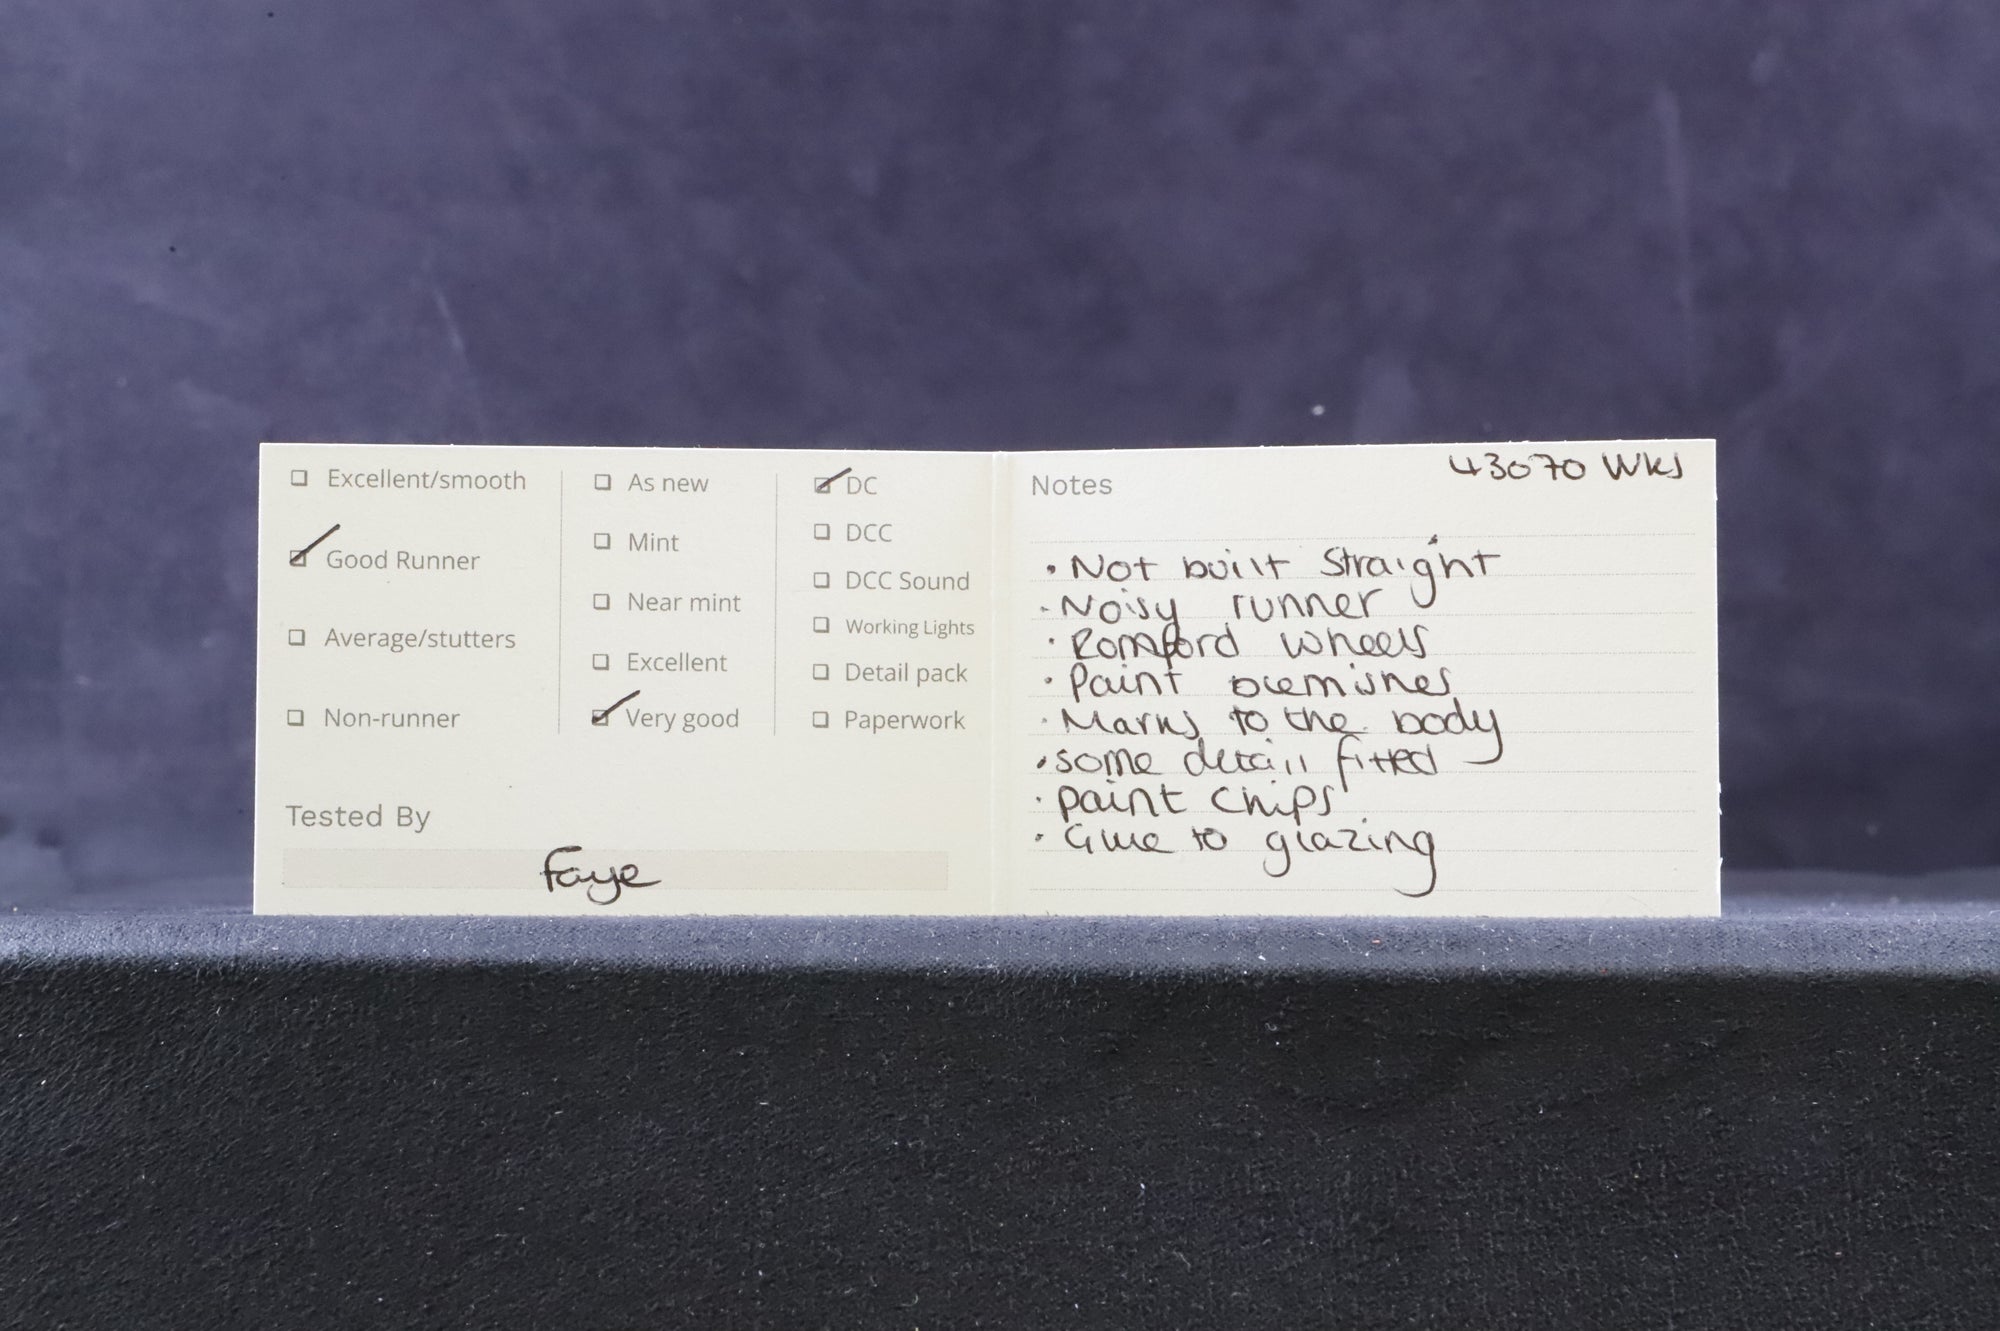 ☐ Excellent/smooth
☑ Good Runner
☐ Average/stutters
☐ Non-runner
☐ As new
☐ Mint
☐ Near mint
☐ Excellent
☑ Very good
☑ DC
☐ DCC
☐ DCC Sound
☐ Working Lights
☐ Detail pack
☐ Paperwork
Tested By
Faye
43070 WKS
Notes
• Not built straight
• Noisy runner
• Romford wheels
• Paint blemishes
• Marks to the body
• some detail fitted
• paint chips
• Glue to glazing